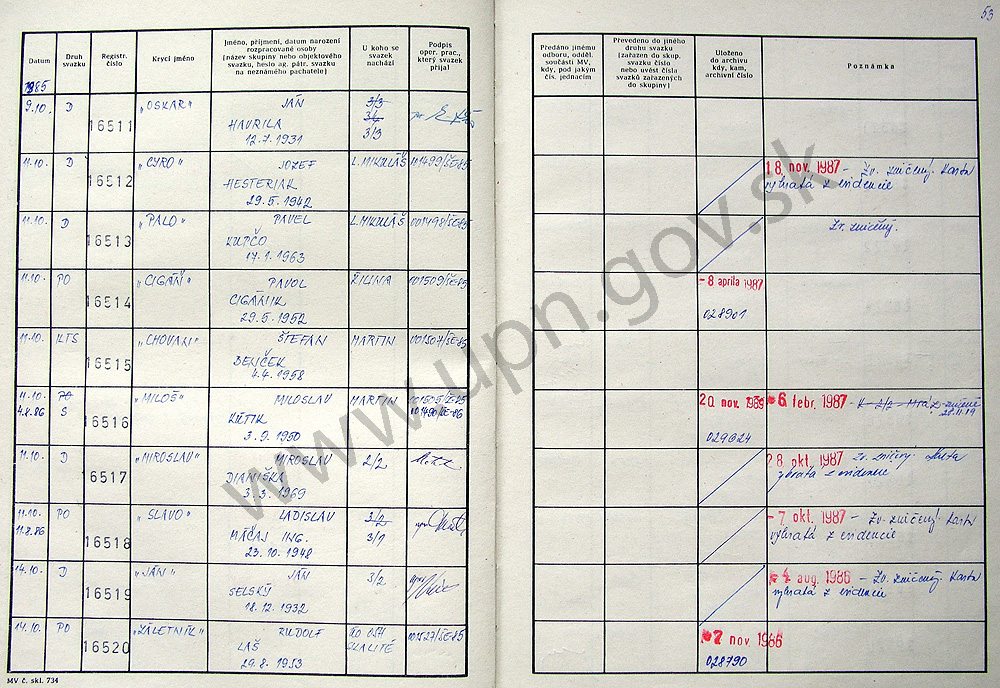 53
Datum
Druh svazku
Registr. číslo
Krycí jméno
Jméno, příjmení, datum narození rozpracované osoby (název skupiny nebo objektového svazku, heslo ag. pátr. svazku na neznámého pachatele)
U koho se svazek nachází
Podpis oper. prac., který svazek přijal
Předáno jinému odboru, odděl. součásti MV, kdy, pod jakým čís. jednacím
Převedeno do jiného druhu svazku (zařazen do skup. svazku číslo nebo uvést čísla svazků zařazených do skupiny)
Uloženo do archivu kdy, kam, archivní číslo
Poznámka
1985
9.10. D 16511 „OSKAR“ JÁN 3/3
HAVRILA 3/3
12.7.1931
11.10. D 16512 „CYRO“ JOZEF L. MIKULÁŠ 001499/ŠE-85 18. nov. 1987 - Zv. zničený. Karta
HESTERIAK vybratá z evidencie
29.5.1942
11.10. D 16513 „PALO“ PAVEL L. MIKULÁŠ 001498/ŠE-85 Zv. zničený.
KUPČO
17.1.1963
11.10. PO 16514 „CIGÁŇ“ PAVOL ŽILINA 001509/ŠE-85 - 8 apríla 1987
CIGÁNIK 028901
29.5.1952
11.10. KTS 16515 „CHOVAN“ ŠTEFAN MARTIN 001507/ŠE-85
BENČEK
4.4.1958
11.10. PO 16516 „MILOŠ“ MILOSLAV MARTIN 001505/ŠE-85 20. nov. 1989 - 6 febr. 1987
4.8.86 S KRTÍK
3.9.1950 029624
11.10. D 16517 „MIROSLAV“ MIROSLAV 2/2 28. okt. 1987 Zv. zničený. Karta
DIANIŠKA vybratá z evidencie
3.3.1969
11.10. PO 16518 „SLAVO“ LADISLAV 3/2 - 7. okt. 1987 - Zv. zničený. Karta
11.8.86 MÁČAJ ING. 3/1 vybratá z evidencie
23.10.1948
14.10. D 16519 „JÁN“ JÁN 3/2 - 4 aug. 1986 - Zv. zničený. Karta
SELSKÝ vybratá z evidencie
18.12.1932
14.10. PO 16520 „ZÁLETNÍK“ RUDOLF OO OSH 001527/ŠE-85 - 7 nov 1986
LAŠ SKALITÉ 028790
29.8.1953
MV č. skl. 734
www.upn.gov.sk